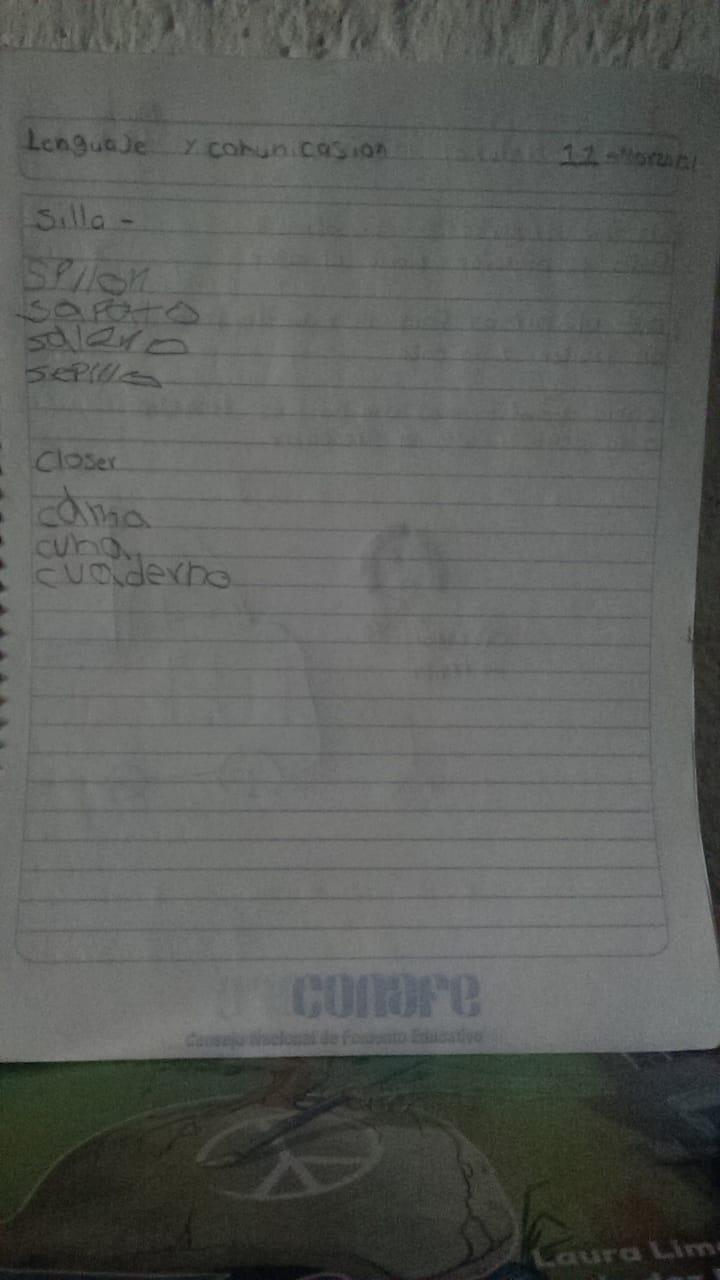 Lenguaje y comunicasion 12
silla -
spllon
sapato
salero
sepillo
closer
cama
cuna
cuaderno
conafe
Consejo Nacional de Fomento Educativo
Laura Lim